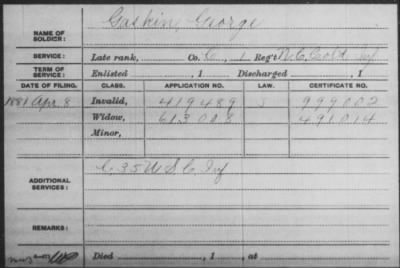 NAME OF SOLDIER: Gaskin, George
SERVICE: Late rank, Co. C, 1 Reg't N.C. Cold Inf
TERM OF SERVICE: Enlisted , 1 Discharged , 1
DATE OF FILING. CLASS. APPLICATION NO. LAW. CERTIFICATE NO.
1881 Apr. 8 Invalid, 419489 999002
Widow, 613008 491014
Minor,
ADDITIONAL SERVICES: C 35 U S C Inf
REMARKS:
Died , 1 , at